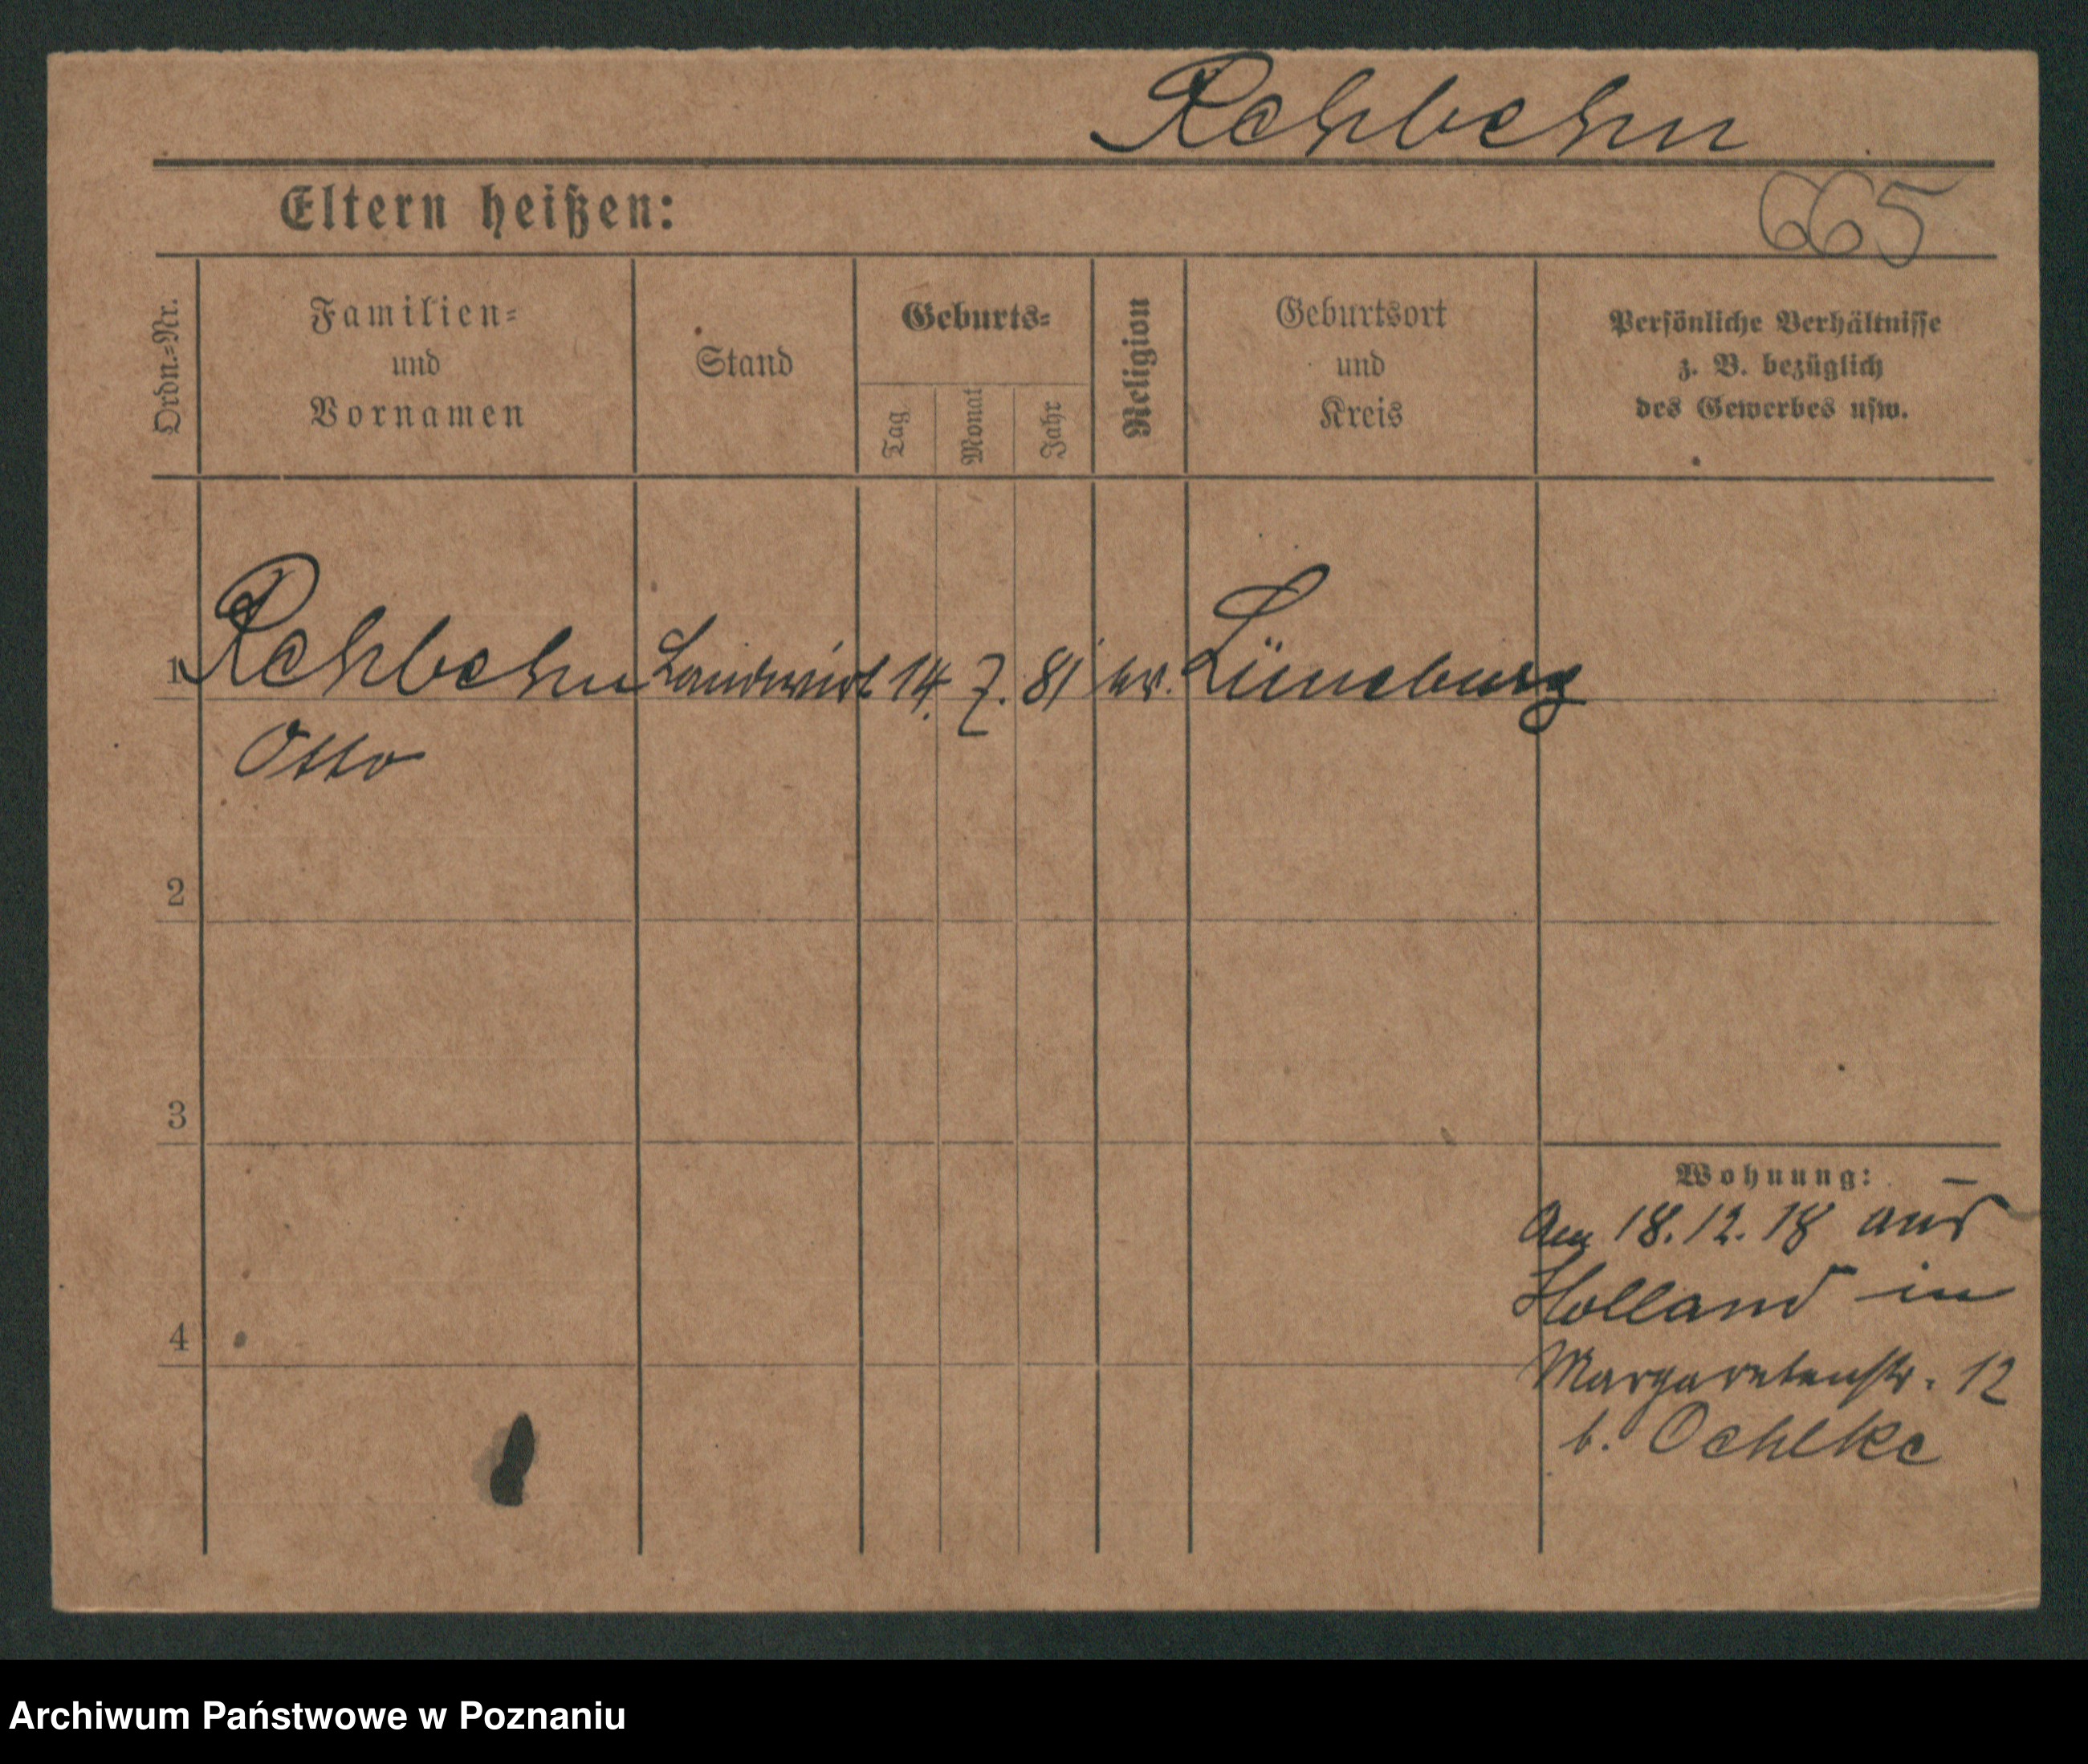 Rehbehn
Eltern heißen:
665
Ordn.=Nr.
Familien=
und
Vornamen
Stand
Geburts=
Tag
Monat
Jahr
Religion
Geburtsort
und
Kreis
Persönliche Verhältnisse
z. B. bezüglich
des Gewerbes usw.
1 Rehbehn Landwirt 14. 7. 81 ev. Lüneburg
Otto
2
3
4
Wohnung:
Am 18.12.18 aus
Holland in
Margaretenstr. 12
b. Oehlke
Archiwum Państwowe w Poznaniu